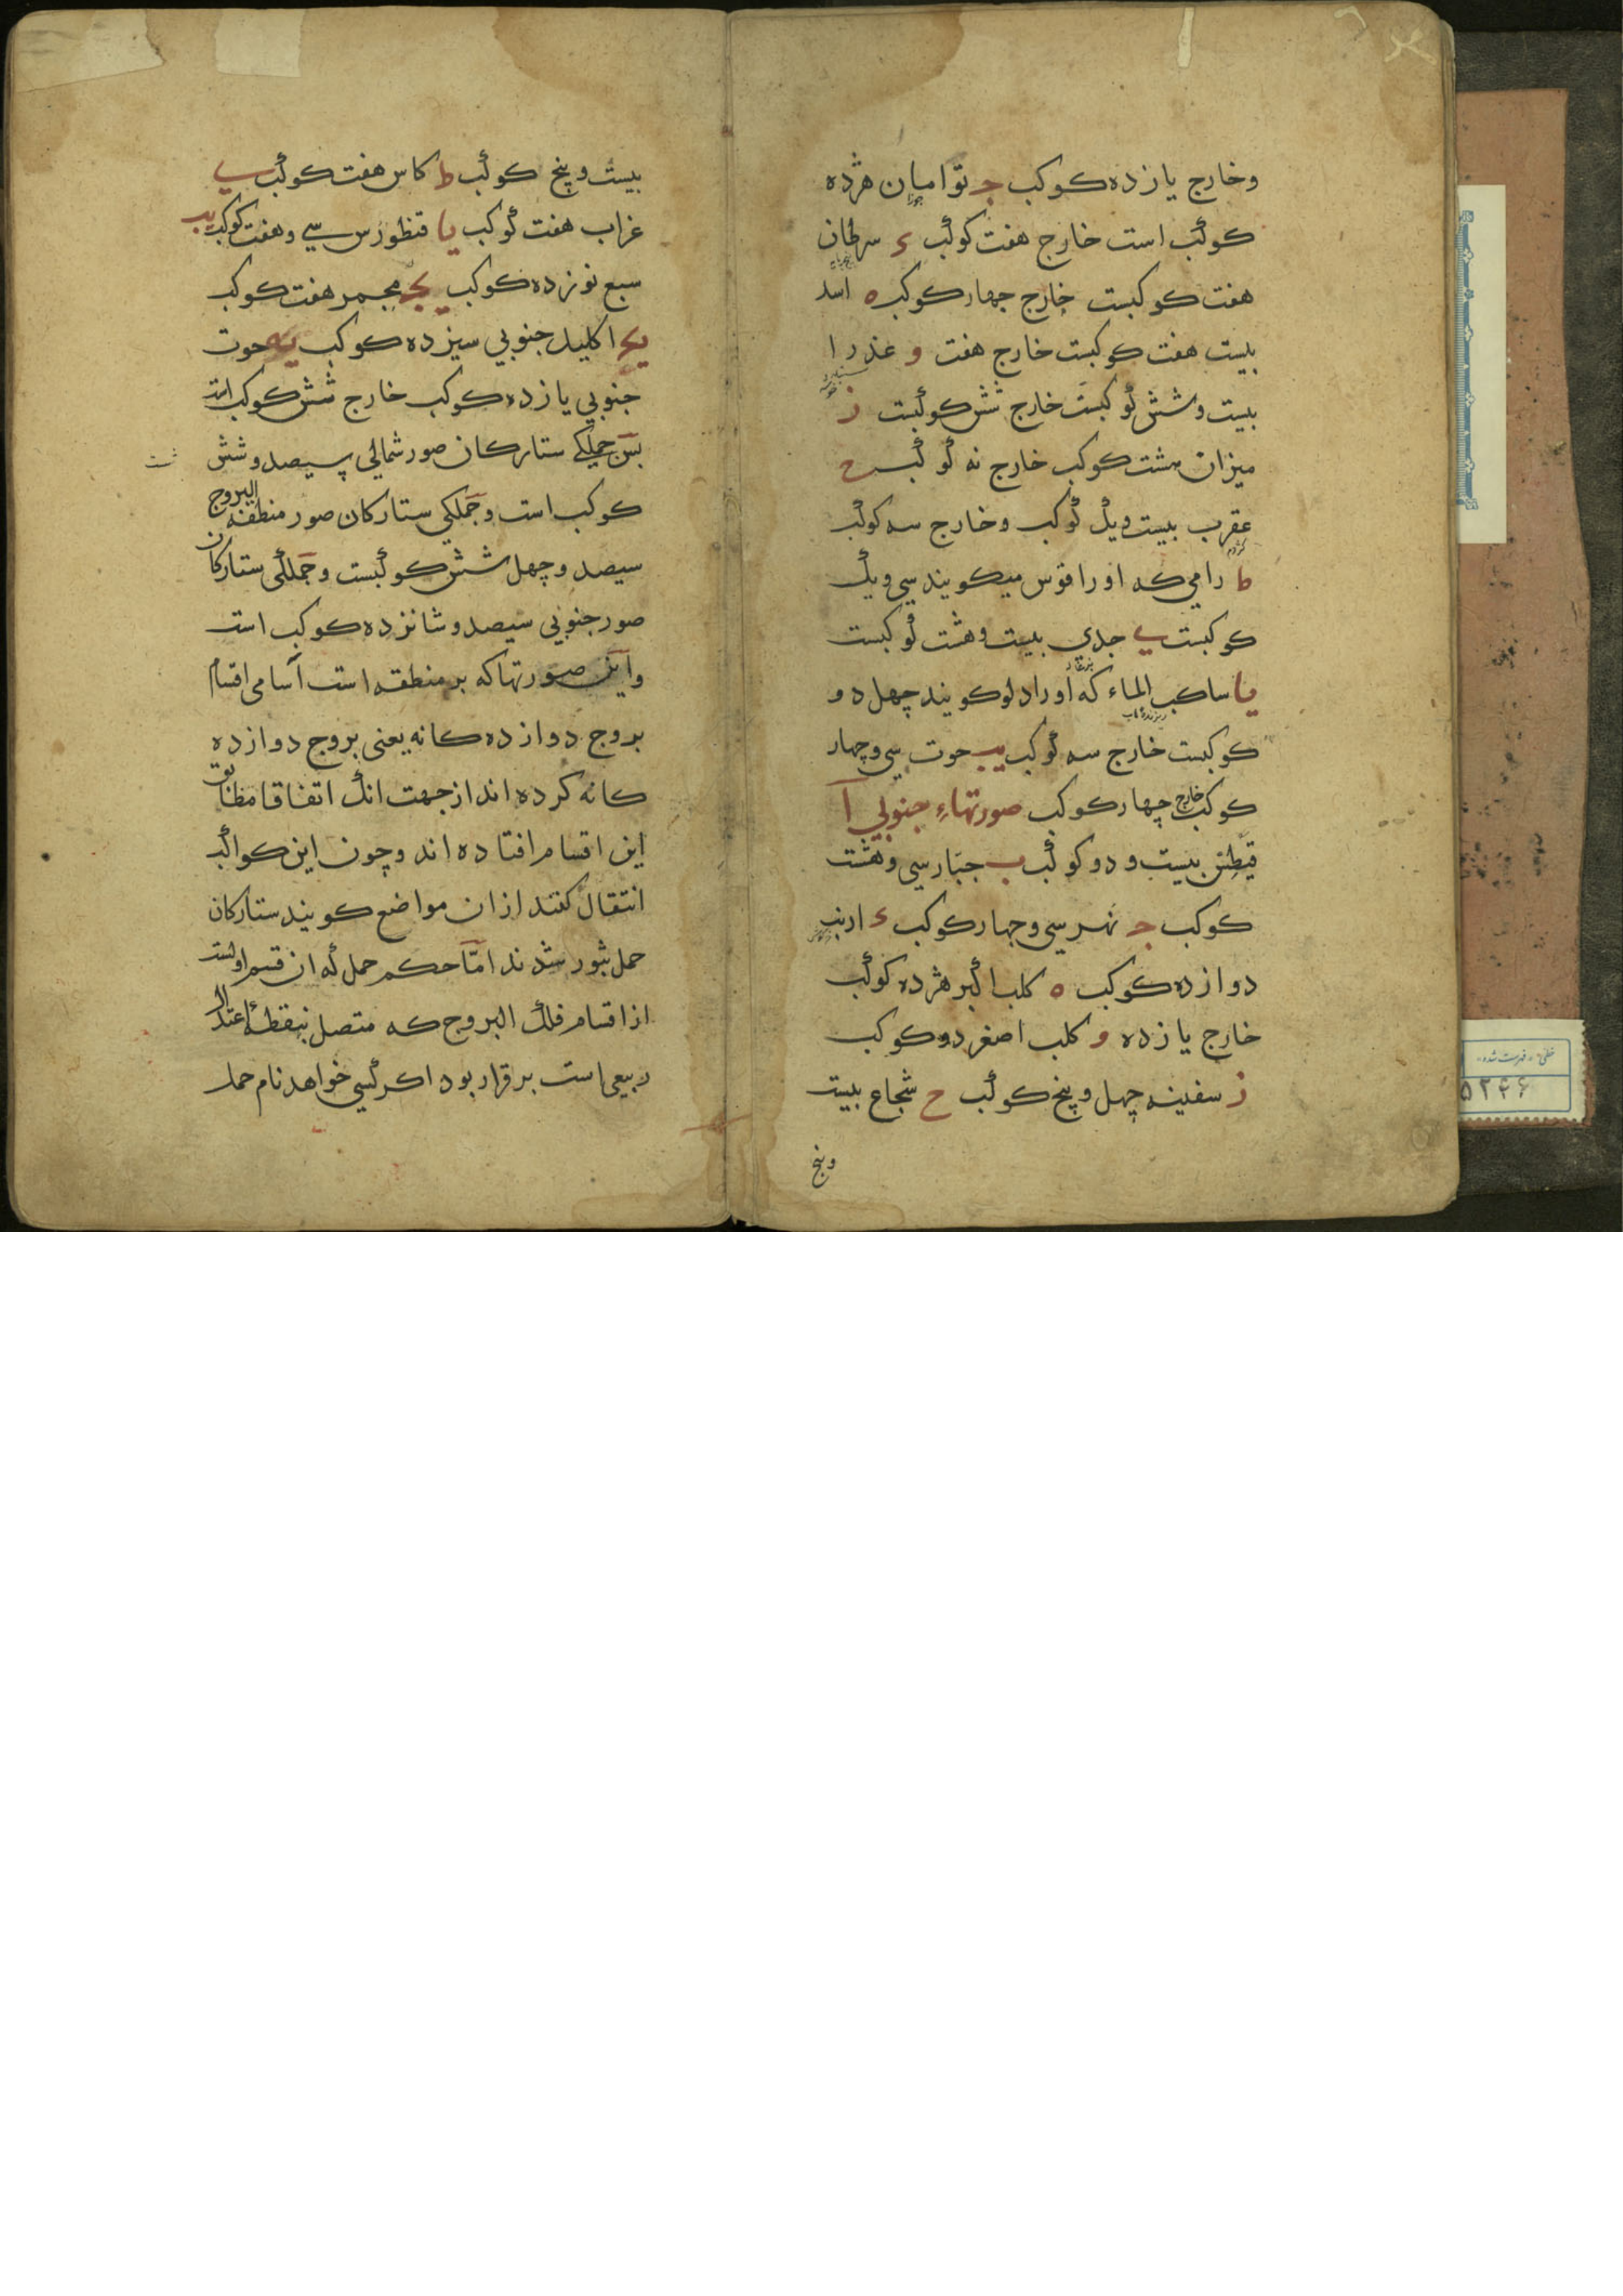 وخارج یازده کوکب ج توامان هژده
جوزا
کوکب است خارج هفت کوکب ء سرطان
هفت کوکبست خارج جهار کوکب ه اسد
بیست هفت کوکبست خارج هفت و عذرا
بیست وشش کوکبست خارج شش کوکبست ز
میزان هشت کوکب خارج نه کوکب ح
عقرب بیست ویک کوکب وخارج سه کوکب
کژدم
ط رامی که اورا قوس میکویند سی ویک
کوکبست ی جدی بیست وهشت کوکبست
یا ساکب الماء که اورا دلو کویند چهل دو
ریزنده آب
کوکبست خارج سه کوکب یب حوت سی وچهار
کوکب خارج چهار کوکب صورتهاء جنوبی آ
قیطس بیست ودو کوکب ب جبّار سی وهشت
کوکب ج نهر سی وجهار کوکب ء ارنب
دوازده کوکب ه کلب اکبر هژده کوکب
خارج یازده و کلب اصغر دو کوکب
ز سفینه چهل وپنج کوکب ح شجاع بیست
وپنج
بیست وپنج کوکب ط کاس هفت کوکب ی
غراب هفت کوکب یا قنطورس سی وهفت کوکب یب
سبع نوزده کوکب یج مجمر هفت کوکب
ید اکلیل جنوبی سیزده کوکب یه حوت
جنوبی یازده کوکب خارج شش کوکب اند
پس جملکی ستارکان صور شمالی سیصد وشش
کوکب است وجملکی ستارکان صور منطقه البروج
سیصد وچهل شش کوکبست وجملکی ستارکان
صور جنوبی سیصد وشانزده کوکب است
واین صورتها که بر منطقه است آسامی اقسام
بروج دوازده کانه یعنی بروج دوازده
کانه کرده اند از جهت انک اتفاقا مطابق
این اقسام افتاده اند وچون این کواکب
انتقال کنند ازان مواضع کویند ستارکان
حمل بثور شدند امّا حکم حمل که ان قسم اولست
از اقسام فلک البروج که متصل بنقطه اعتدال
ربیعی است برقرار بود اکر کسی خواهد نام حمل
خطی - فهرست شده
۵۲۴۶